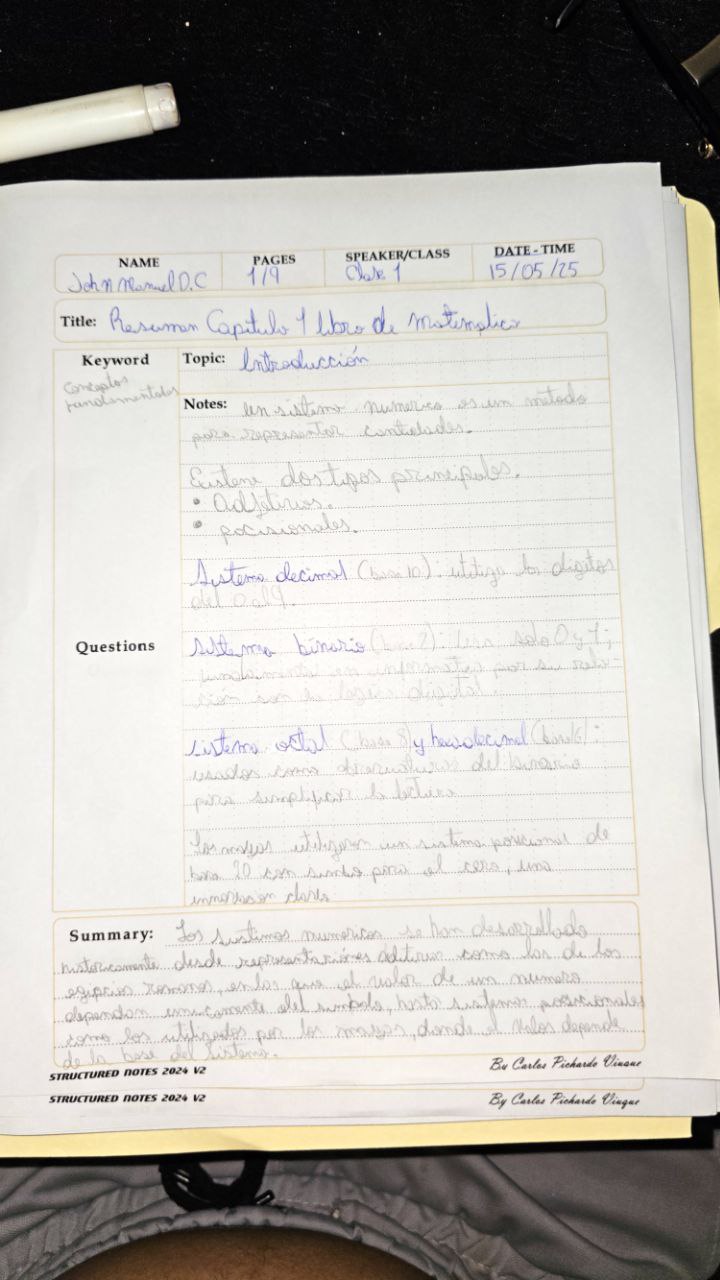 NAME PAGES SPEAKER/CLASS DATE - TIME
John Manuel D.C 1/9 Clase 1 15/05/25
Title: Resumen Capitulo 1 libro de matematica
Keyword Topic: Introducción
Conceptos
fundamentales
Notes: un sistema numerico es un metodo
para representar cantidades.
Existene dos tipos principales.
• Adjetivos.
• pocisionales.
Sistema decimal (base 10): utiliza los digitos
del 0 al 9.
Questions
sistema binario (base 2): Usa solo 0 y 1;
en informatica por su rela-
ción con la logica digital.
sistema octal (base 8) y hexadecimal (base 16):
usados como del binario
para simplificar la lectura
Los mayas utilizaron un sistema posicional de
base 20 con simbo para el cero, una
clave
Summary: Los sistemas numericos se han desarrollado
historicamente desde representaciones aditivas como las de los
egipcios romanos, en las que el valor de un numero
dependian unicamente del simbolo, hasta sistemas posicionales
como los utilizados por los mayas, donde el valor depende
de la base del sistema.
STRUCTURED NOTES 2024 V2 By Carlos Pichardo Viuque
STRUCTURED NOTES 2024 V2 By Carlos Pichardo Viuque